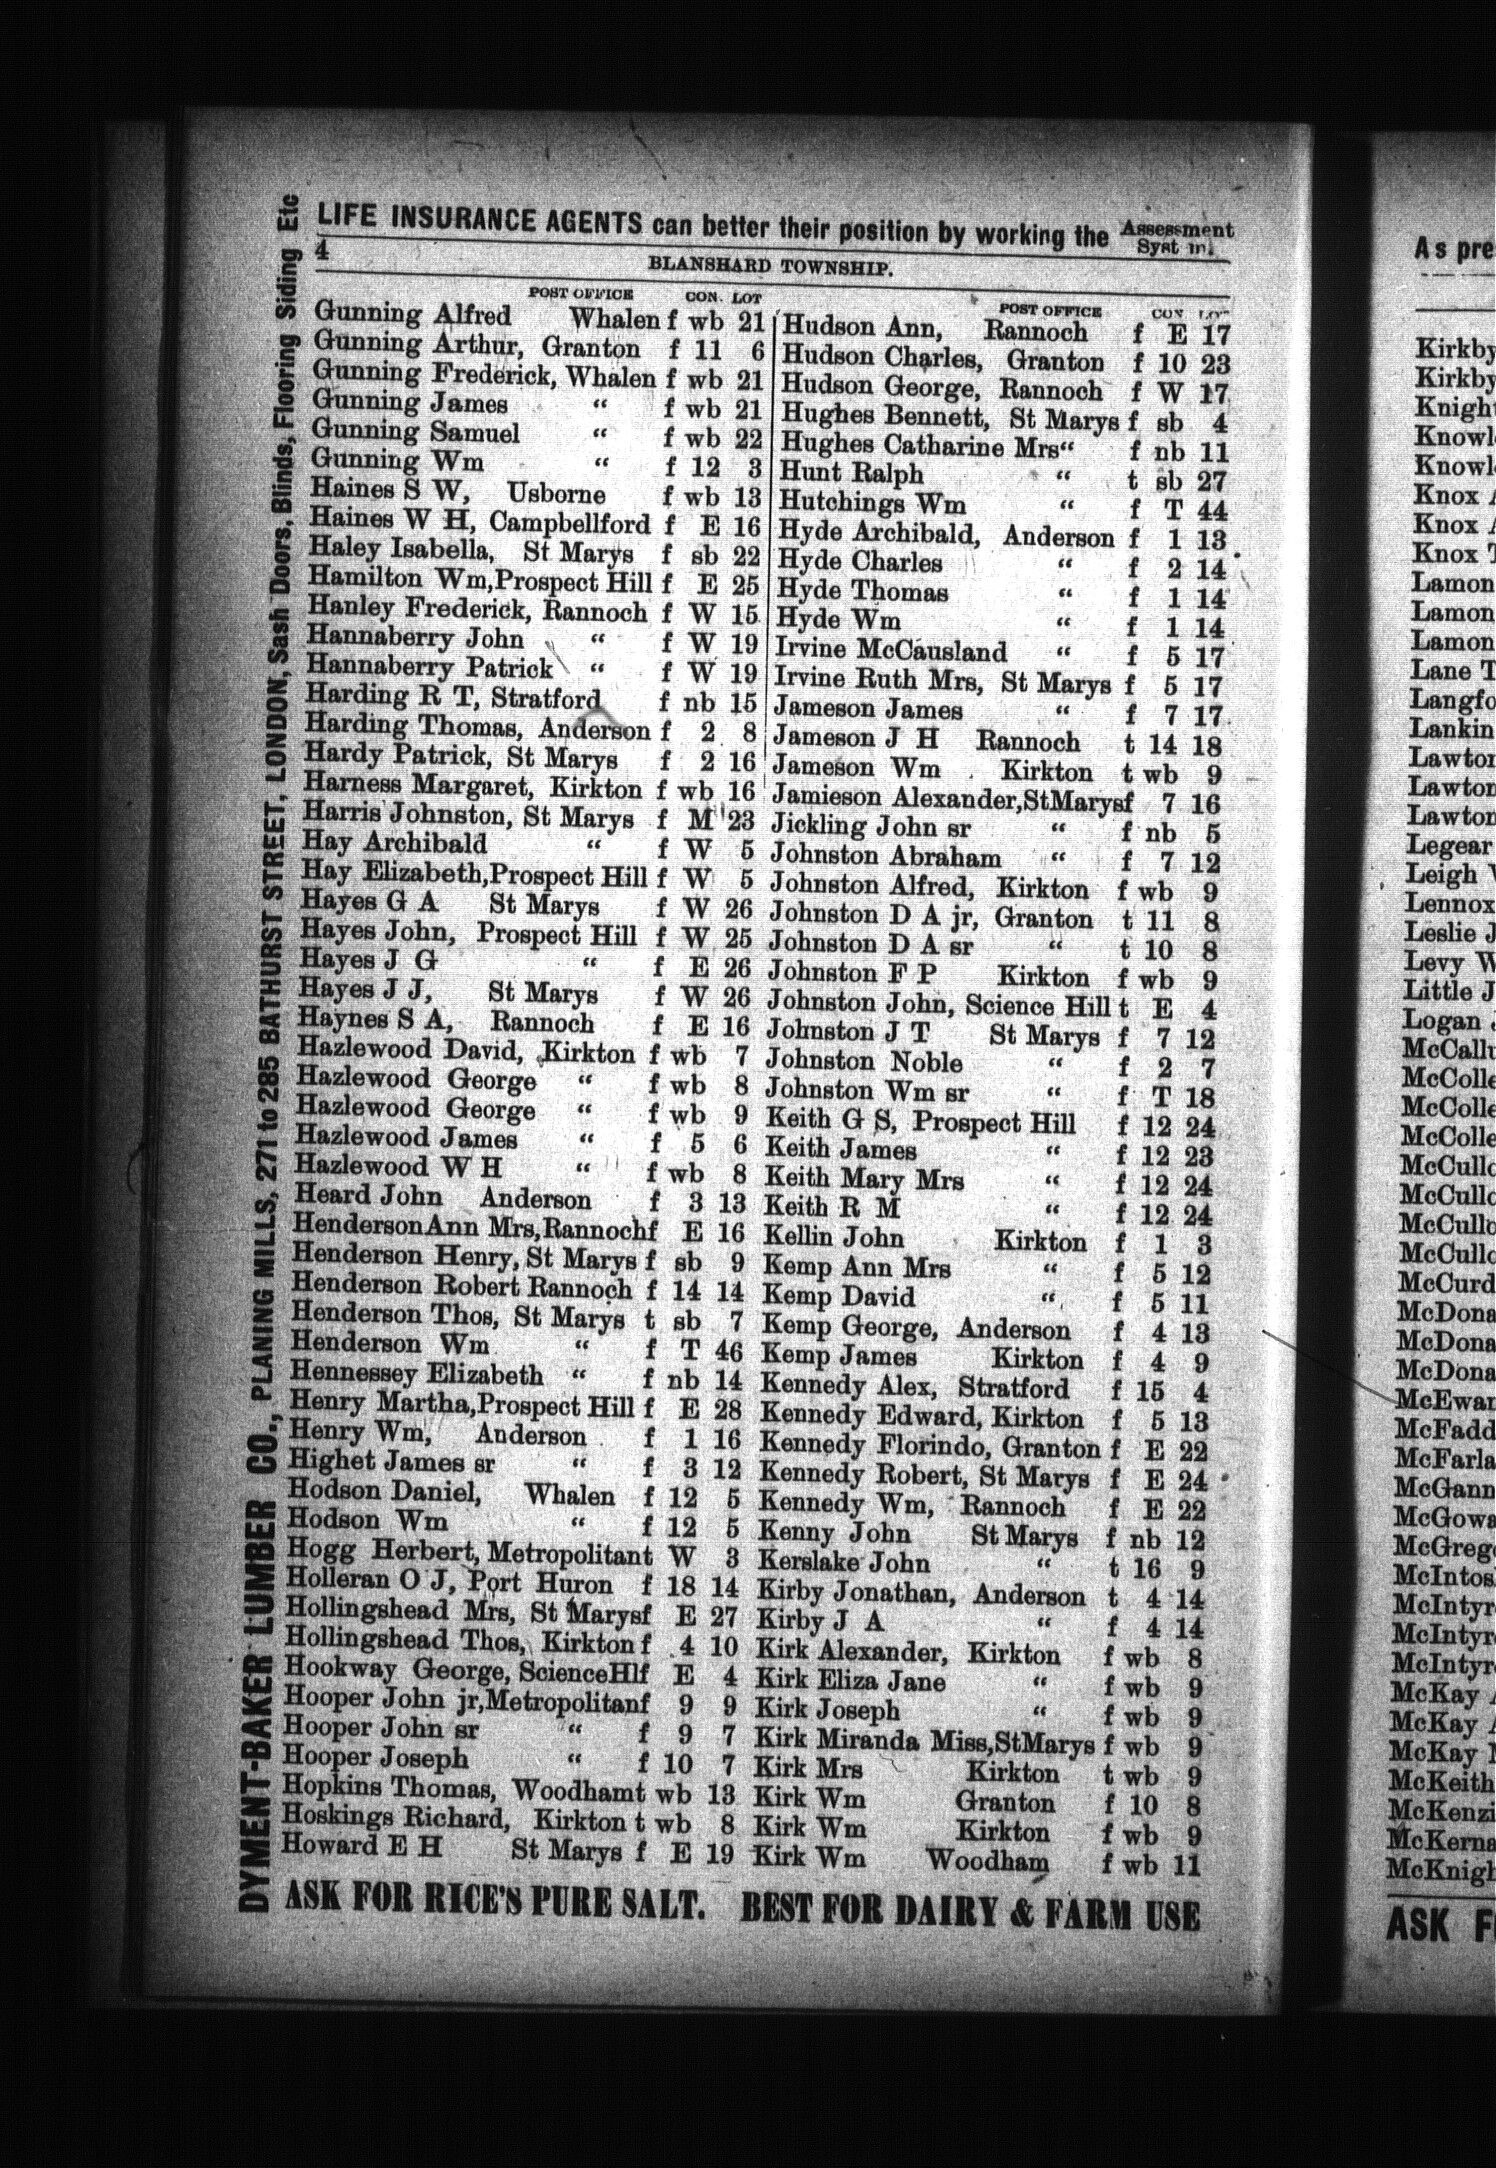 LIFE INSURANCE AGENTS can better their position by working the Assessment
4
BLANSHARD TOWNSHIP.
POST OFFICE CON. LOT
Gunning Alfred Whalen f wb 21
Gunning Arthur, Granton f 11 6
Gunning Frederick, Whalen f wb 21
Gunning James “ f wb 21
Gunning Samuel “ f wb 22
Gunning Wm “ f 12 3
Haines S W, Usborne f wb 13
Haines W H, Campbellford f E 16
Haley Isabella, St Marys f sb 22
Hamilton Wm,Prospect Hill f E 25
Hanley Frederick, Rannoch f W 15
Hannaberry John “ f W 19
Hannaberry Patrick “ f W 19
Harding R T, Stratford f nb 15
Harding Thomas, Anderson f 2 8
Hardy Patrick, St Marys f 2 16
Harness Margaret, Kirkton f wb 16
Harris Johnston, St Marys f M 23
Hay Archibald “ f W 5
Hay Elizabeth,Prospect Hill f W 5
Hayes G A St Marys f W 26
Hayes John, Prospect Hill f W 25
Hayes J G “ f E 26
Hayes J J, St Marys f W 26
Haynes S A, Rannoch f E 16
Hazlewood David, Kirkton f wb 7
Hazlewood George “ f wb 8
Hazlewood George “ f wb 9
Hazlewood James “ f 5 6
Hazlewood W H “ f wb 8
Heard John Anderson f 3 13
HendersonAnn Mrs,Rannochf E 16
Henderson Henry, St Marys f sb 9
Henderson Robert Rannoch f 14 14
Henderson Thos, St Marys t sb 7
Henderson Wm “ f T 46
Hennessey Elizabeth “ f nb 14
Henry Martha,Prospect Hill f E 28
Henry Wm, Anderson f 1 16
Highet James sr “ f 3 12
Hodson Daniel, Whalen f 12 5
Hodson Wm “ f 12 5
Hogg Herbert, Metropolitant W 3
Holleran O J, Port Huron f 18 14
Hollingshead Mrs, St Marysf E 27
Hollingshead Thos, Kirkton f 4 10
Hookway George, ScienceHlf E 4
Hooper John jr,Metropolitanf 9 9
Hooper John sr “ f 9 7
Hooper Joseph “ f 10 7
Hopkins Thomas, Woodhamt wb 13
Hoskings Richard, Kirkton t wb 8
Howard E H St Marys f E 19
POST OFFICE CON LOT
Hudson Ann, Rannoch f E 17
Hudson Charles, Granton f 10 23
Hudson George, Rannoch f W 17
Hughes Bennett, St Marys f sb 4
Hughes Catharine Mrs“ f nb 11
Hunt Ralph “ t sb 27
Hutchings Wm “ f T 44
Hyde Archibald, Anderson f 1 13
Hyde Charles “ f 2 14
Hyde Thomas “ f 1 14
Hyde Wm “ f 1 14
Irvine McCausland “ f 5 17
Irvine Ruth Mrs, St Marys f 5 17
Jameson James “ f 7 17
Jameson J H Rannoch t 14 18
Jameson Wm Kirkton t wb 9
Jamieson Alexander,StMarysf 7 16
Jickling John sr “ f nb 5
Johnston Abraham “ f 7 12
Johnston Alfred, Kirkton f wb 9
Johnston D A jr, Granton t 11 8
Johnston D A sr “ t 10 8
Johnston F P Kirkton f wb 9
Johnston John, Science Hill t E 4
Johnston J T St Marys f 7 12
Johnston Noble “ f 2 7
Johnston Wm sr “ f T 18
Keith G S, Prospect Hill f 12 24
Keith James “ f 12 23
Keith Mary Mrs “ f 12 24
Keith R M “ f 12 24
Kellin John Kirkton f 1 3
Kemp Ann Mrs “ f 5 12
Kemp David “ f 5 11
Kemp George, Anderson f 4 13
Kemp James Kirkton f 4 9
Kennedy Alex, Stratford f 15 4
Kennedy Edward, Kirkton f 5 13
Kennedy Florindo, Granton f E 22
Kennedy Robert, St Marys f E 24
Kennedy Wm, Rannoch f E 22
Kenny John St Marys f nb 12
Kerslake John “ t 16 9
Kirby Jonathan, Anderson t 4 14
Kirby J A “ f 4 14
Kirk Alexander, Kirkton f wb 8
Kirk Eliza Jane “ f wb 9
Kirk Joseph “ f wb 9
Kirk Miranda Miss,StMarys f wb 9
Kirk Mrs Kirkton t wb 9
Kirk Wm Granton f 10 8
Kirk Wm Kirkton f wb 9
Kirk Wm Woodham f wb 11
ASK FOR RICE'S PURE SALT. BEST FOR DAIRY & FARM USE
DYMENT-BAKER LUMBER CO., PLANING MILLS, 271 to 285 BATHURST STREET, LONDON, Sash Doors, Blinds, Flooring Siding Etc
As pre
Kirkby
Kirkby
Knight
Knowl
Knowl
Knox A
Knox A
Knox T
Lamon
Lamon
Lamon
Lane T
Langfo
Lankin
Lawton
Lawton
Lawton
Legear
Leigh
Lennox
Leslie J
Levy W
Little J
Logan J
McCallu
McColle
McColle
McColle
McCullo
McCullo
McCullo
McCullo
McCurd
McDona
McDona
McDona
McEwan
McFadd
McFarla
McGann
McGowa
McGrego
McIntos
McIntyre
McIntyre
McIntyre
McKay A
McKay A
McKay
McKeith
McKenzi
McKerna
McKnigh
ASK F